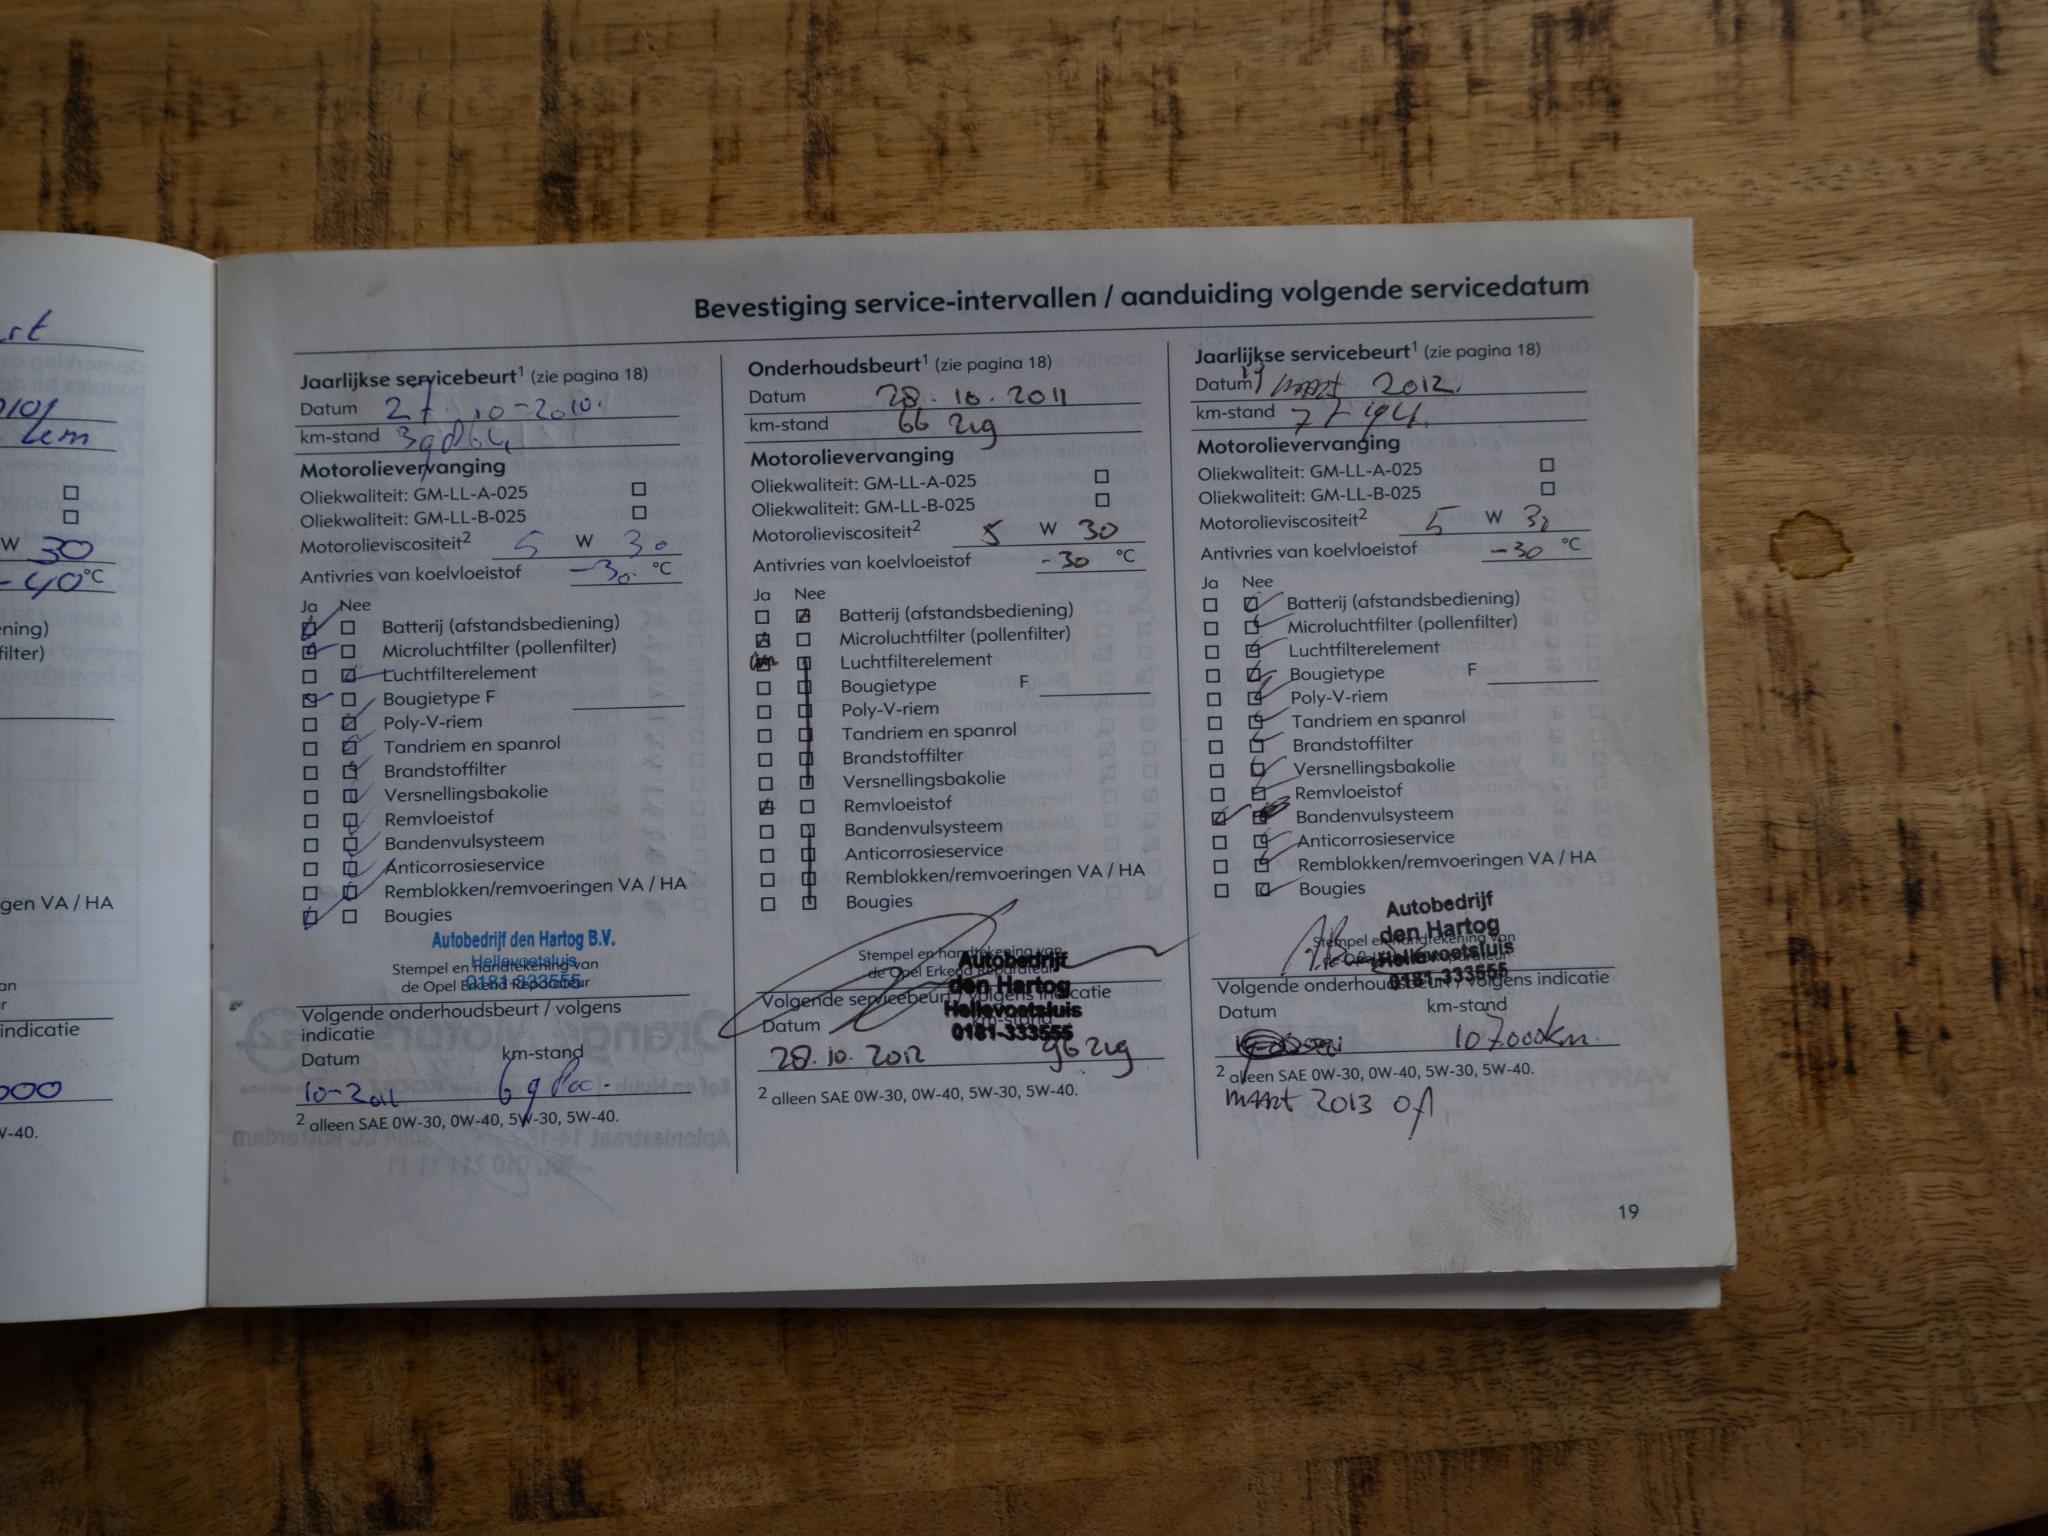 Bevestiging service-intervallen / aanduiding volgende servicedatum
rt
km
W 30
-40°C
ening)
filter)
gen VA / HA
an
r
indicatie
000
W-40.
Jaarlijkse servicebeurt¹ (zie pagina 18)
Datum 27. 10-2010.
km-stand
Motorolievervanging
Oliekwaliteit: GM-LL-A-025
Oliekwaliteit: GM-LL-B-025
Motorolieviscositeit² 5 W 30
Antivries van koelvloeistof -30 °C
Ja Nee
Batterij (afstandsbediening)
Microluchtfilter (pollenfilter)
Luchtfilterelement
Bougietype F
Poly-V-riem
Tandriem en spanrol
Brandstoffilter
Versnellingsbakolie
Remvloeistof
Bandenvulsysteem
Anticorrosieservice
Remblokken/remvoeringen VA / HA
Bougies
Autobedrijf den Hartog B.V.
Hellevoetsluis
0181-333555
Stempel en handtekening van
de Opel Erkend Reparateur
Volgende onderhoudsbeurt / volgens
indicatie
Datum km-stand
10-2011 69800.
² alleen SAE 0W-30, 0W-40, 5W-30, 5W-40.
Onderhoudsbeurt¹ (zie pagina 18)
Datum 28. 10. 2011
km-stand 66 219
Motorolievervanging
Oliekwaliteit: GM-LL-A-025
Oliekwaliteit: GM-LL-B-025
Motorolieviscositeit² 5 W 30
Antivries van koelvloeistof -30 °C
Ja Nee
Batterij (afstandsbediening)
Microluchtfilter (pollenfilter)
Luchtfilterelement
Bougietype F
Poly-V-riem
Tandriem en spanrol
Brandstoffilter
Versnellingsbakolie
Remvloeistof
Bandenvulsysteem
Anticorrosieservice
Remblokken/remvoeringen VA / HA
Bougies
Stempel en handtekening van
de Opel Erkend Reparateur
Autobedrijf
den Hartog
Hellevoetsluis
0181-333555
Volgende servicebeurt / volgens indicatie
Datum km-stand
28. 10. 2012 96 219
² alleen SAE 0W-30, 0W-40, 5W-30, 5W-40.
Jaarlijkse servicebeurt¹ (zie pagina 18)
Datum 19 maart 2012.
km-stand
Motorolievervanging
Oliekwaliteit: GM-LL-A-025
Oliekwaliteit: GM-LL-B-025
Motorolieviscositeit² 5 W 30
Antivries van koelvloeistof -30 °C
Ja Nee
Batterij (afstandsbediening)
Microluchtfilter (pollenfilter)
Luchtfilterelement
Bougietype F
Poly-V-riem
Tandriem en spanrol
Brandstoffilter
Versnellingsbakolie
Remvloeistof
Bandenvulsysteem
Anticorrosieservice
Remblokken/remvoeringen VA / HA
Bougies
Autobedrijf
den Hartog
Hellevoetsluis
0181-333555
Stempel en handtekening van
de Opel Erkend Reparateur
Volgende onderhoudsbeurt / volgens indicatie
Datum km-stand
107.000km.
² alleen SAE 0W-30, 0W-40, 5W-30, 5W-40.
maart 2013 of
19